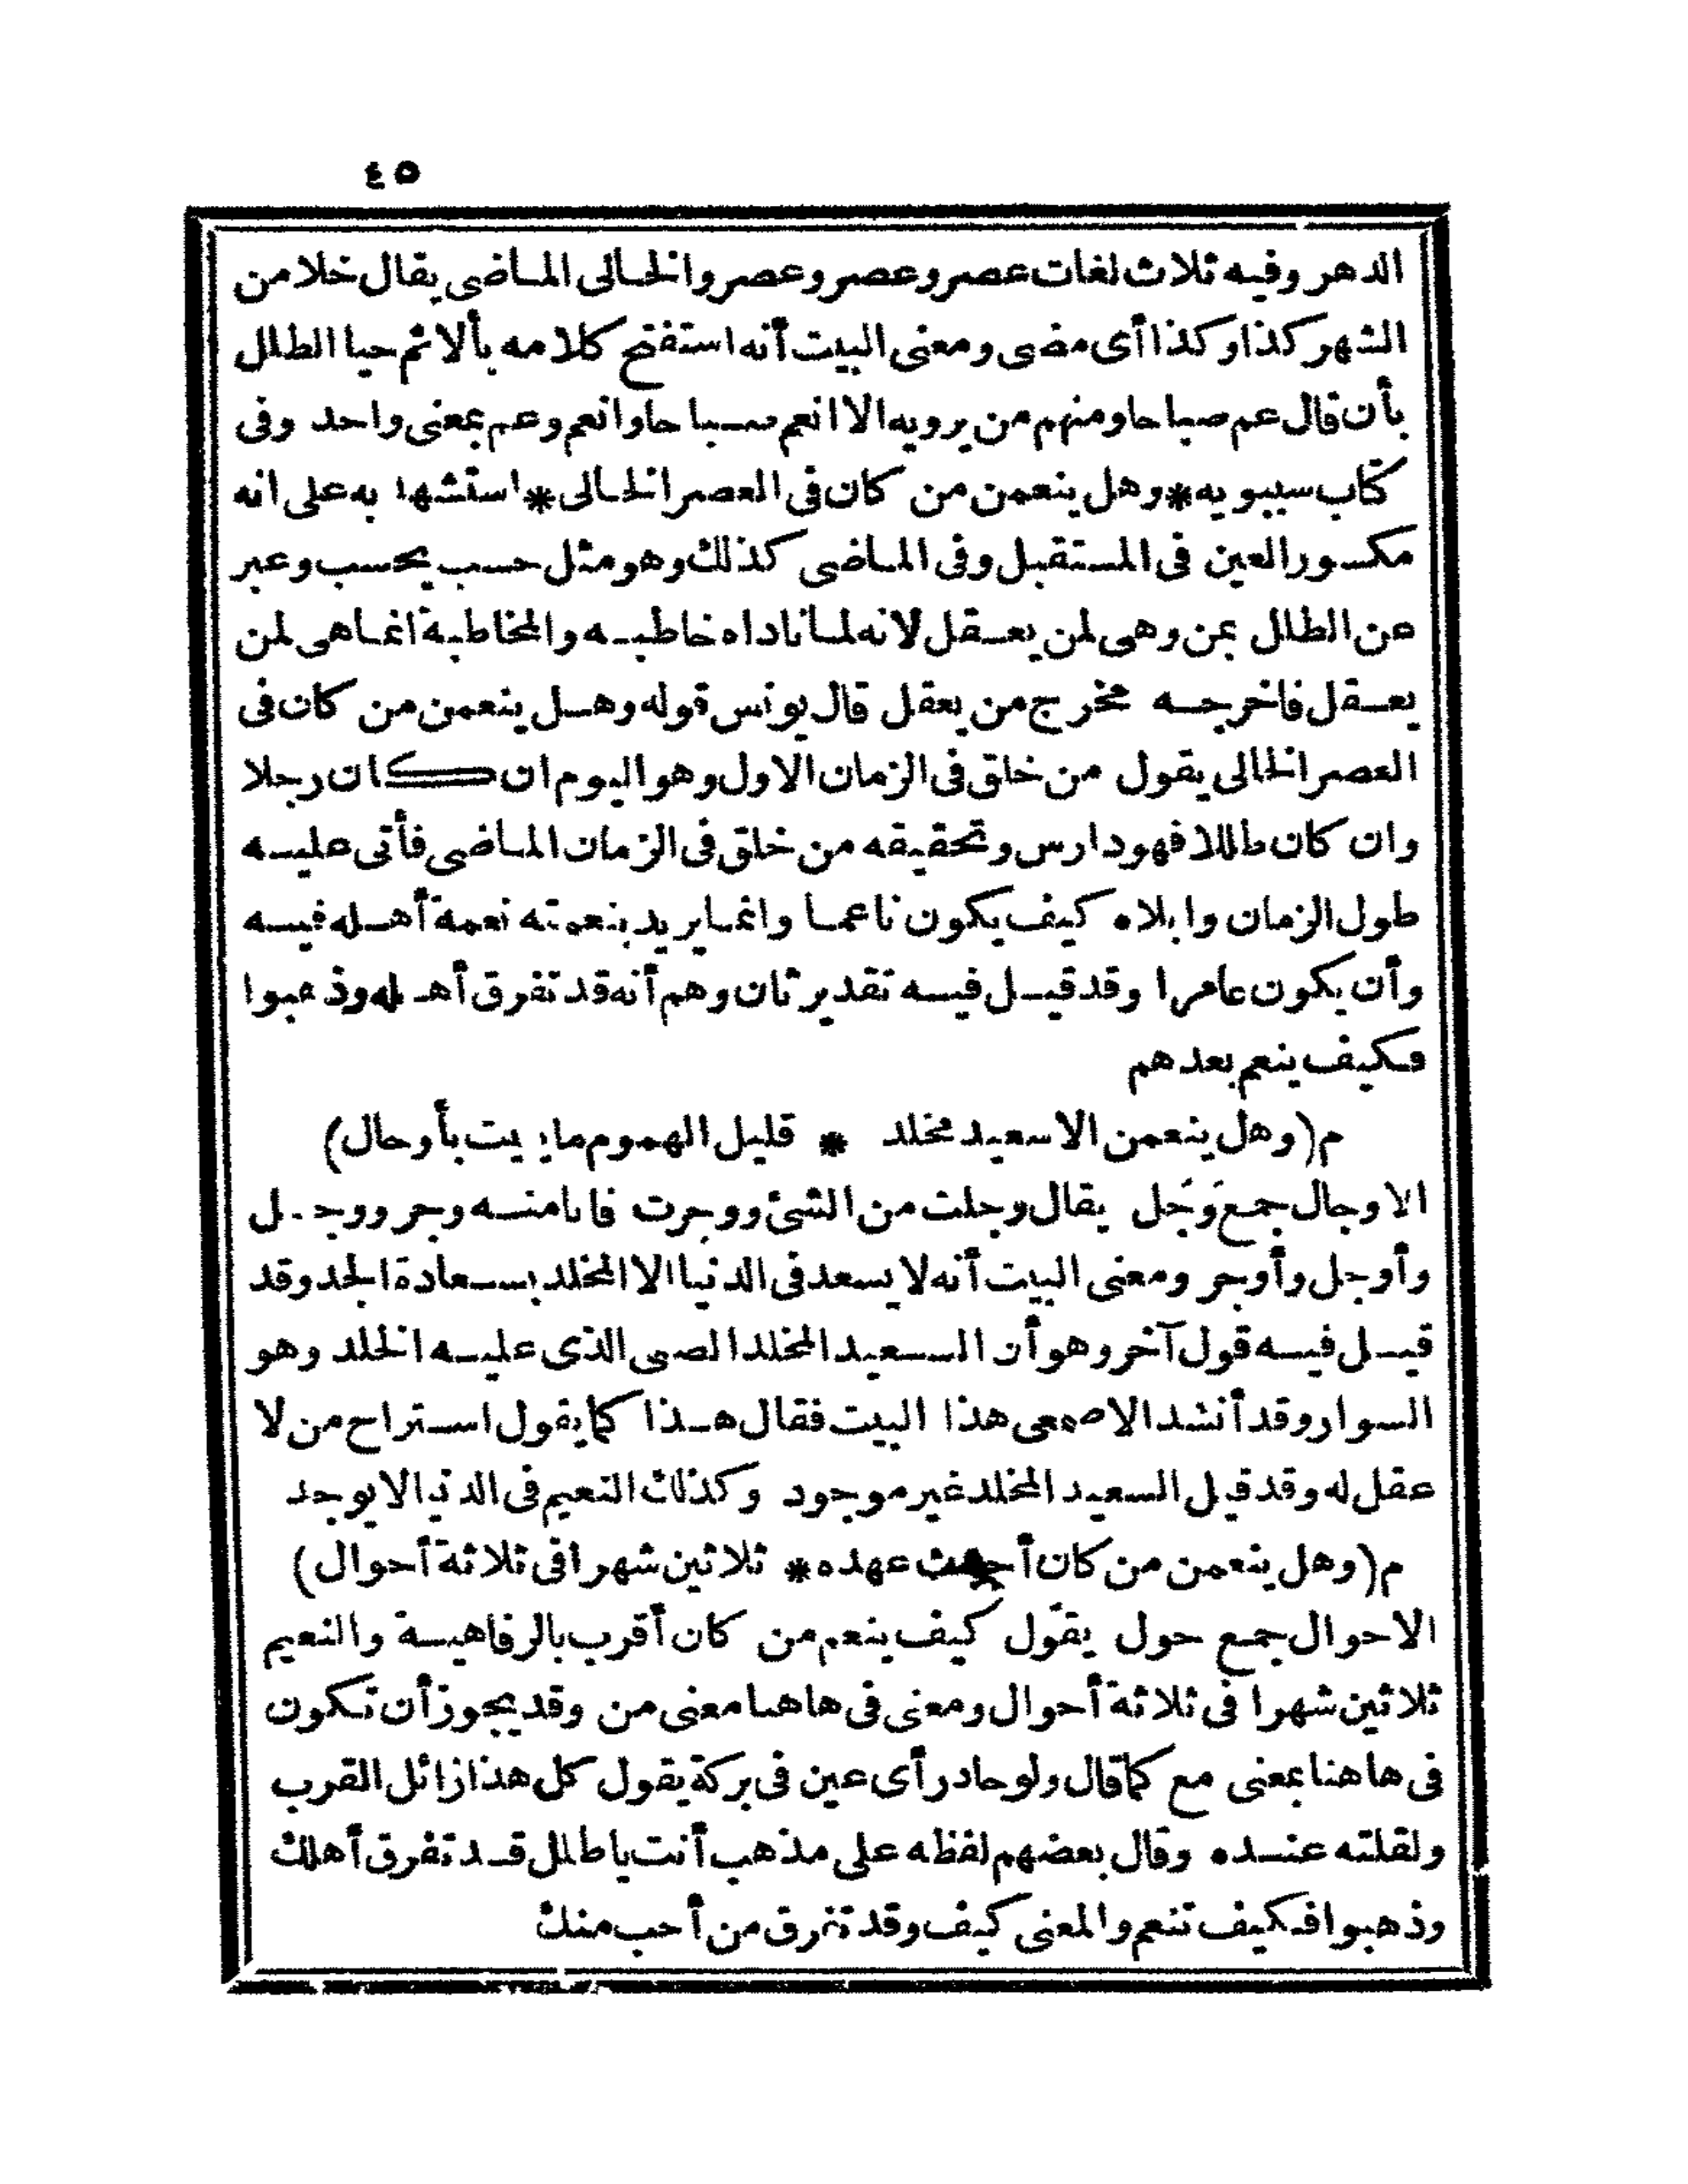 ٤٥
الدهر وفيه ثلاث لغات عصر وعصر وعصر والخالى الماضى يقال خلا من
الشهر كذا وكذا أى مضى ومعنى البيت أنه استفتح كلامه بألا ثم حيا الطلل
بأن قال عم صباحا ومنهم من يرويه الا انعم صباحا وانعم وعم بمعنى واحد وفى
كتاب سيبويه * وهل ينعمن من كان فى العصر الخالى * استشهد به على انه
مكسور العين فى المستقبل وفى الماضى كذلك وهو مثل حسب يحسب وعبر
عن الطلل بمن وهى لمن يعقل لانه لما ناداه خاطبه والمخاطبة انما هى لمن
يعقل فاخرجه مخرج من يعقل قال يونس قوله وهل ينعمن من كان فى
العصر الخالى يقول من خلق فى الزمان الاول وهو اليوم ان كان رجلا
وان كان طللا فهو دارس وتحقيقه من خلق فى الزمان الماضى فأتى عليه
طول الزمان وابلاه كيف يكون ناعما وانما يريد بنعمته نعمة أهله فيه
وأن يكون عامرا وقد قيل فيه تقدير ثان وهم أنه قد تفرق أهله وذهبوا
فكيف ينعم بعدهم
م (وهل ينعمن الا سعيد مخلد * قليل الهموم ما يبيت بأوجال)
الاوجال جمع وَجَل يقال وجلت من الشئ ووجرت فانا منه وجر ووجل
وأوجل وأوجر ومعنى البيت أنه لا يسعد فى الدنيا الا المخلد بسعادة الجد وقد
قيل فيه قول آخر وهو أن السعيد المخلد الصبى الذى عليه الخلد وهو
السوار وقد أنشد الاصمعى هذا البيت فقال هذا كما يقول استراح من لا
عقل له وقد قيل السعيد المخلد غير موجود وكذلك النعيم فى الدنيا لا يوجد
م (وهل ينعمن من كان أحدث عهده * ثلاثين شهرا فى ثلاثة أحوال)
الاحوال جمع حول يقول كيف ينعم من كان أقرب بالرفاهية والنعيم
ثلاثين شهرا فى ثلاثة أحوال ومعنى فى هاهنا معنى من وقد يجوز أن تكون
فى هاهنا بمعنى مع كما قال ولو حادر أى عين فى بركة يقول كل هذا زائل القرب
ولقلته عنده وقال بعضهم لفظه على مذهب أنت يا طلل قد تفرق أهلك
وذهبوا فكيف تنعم والمعنى كيف وقد تفرق من أحب منك